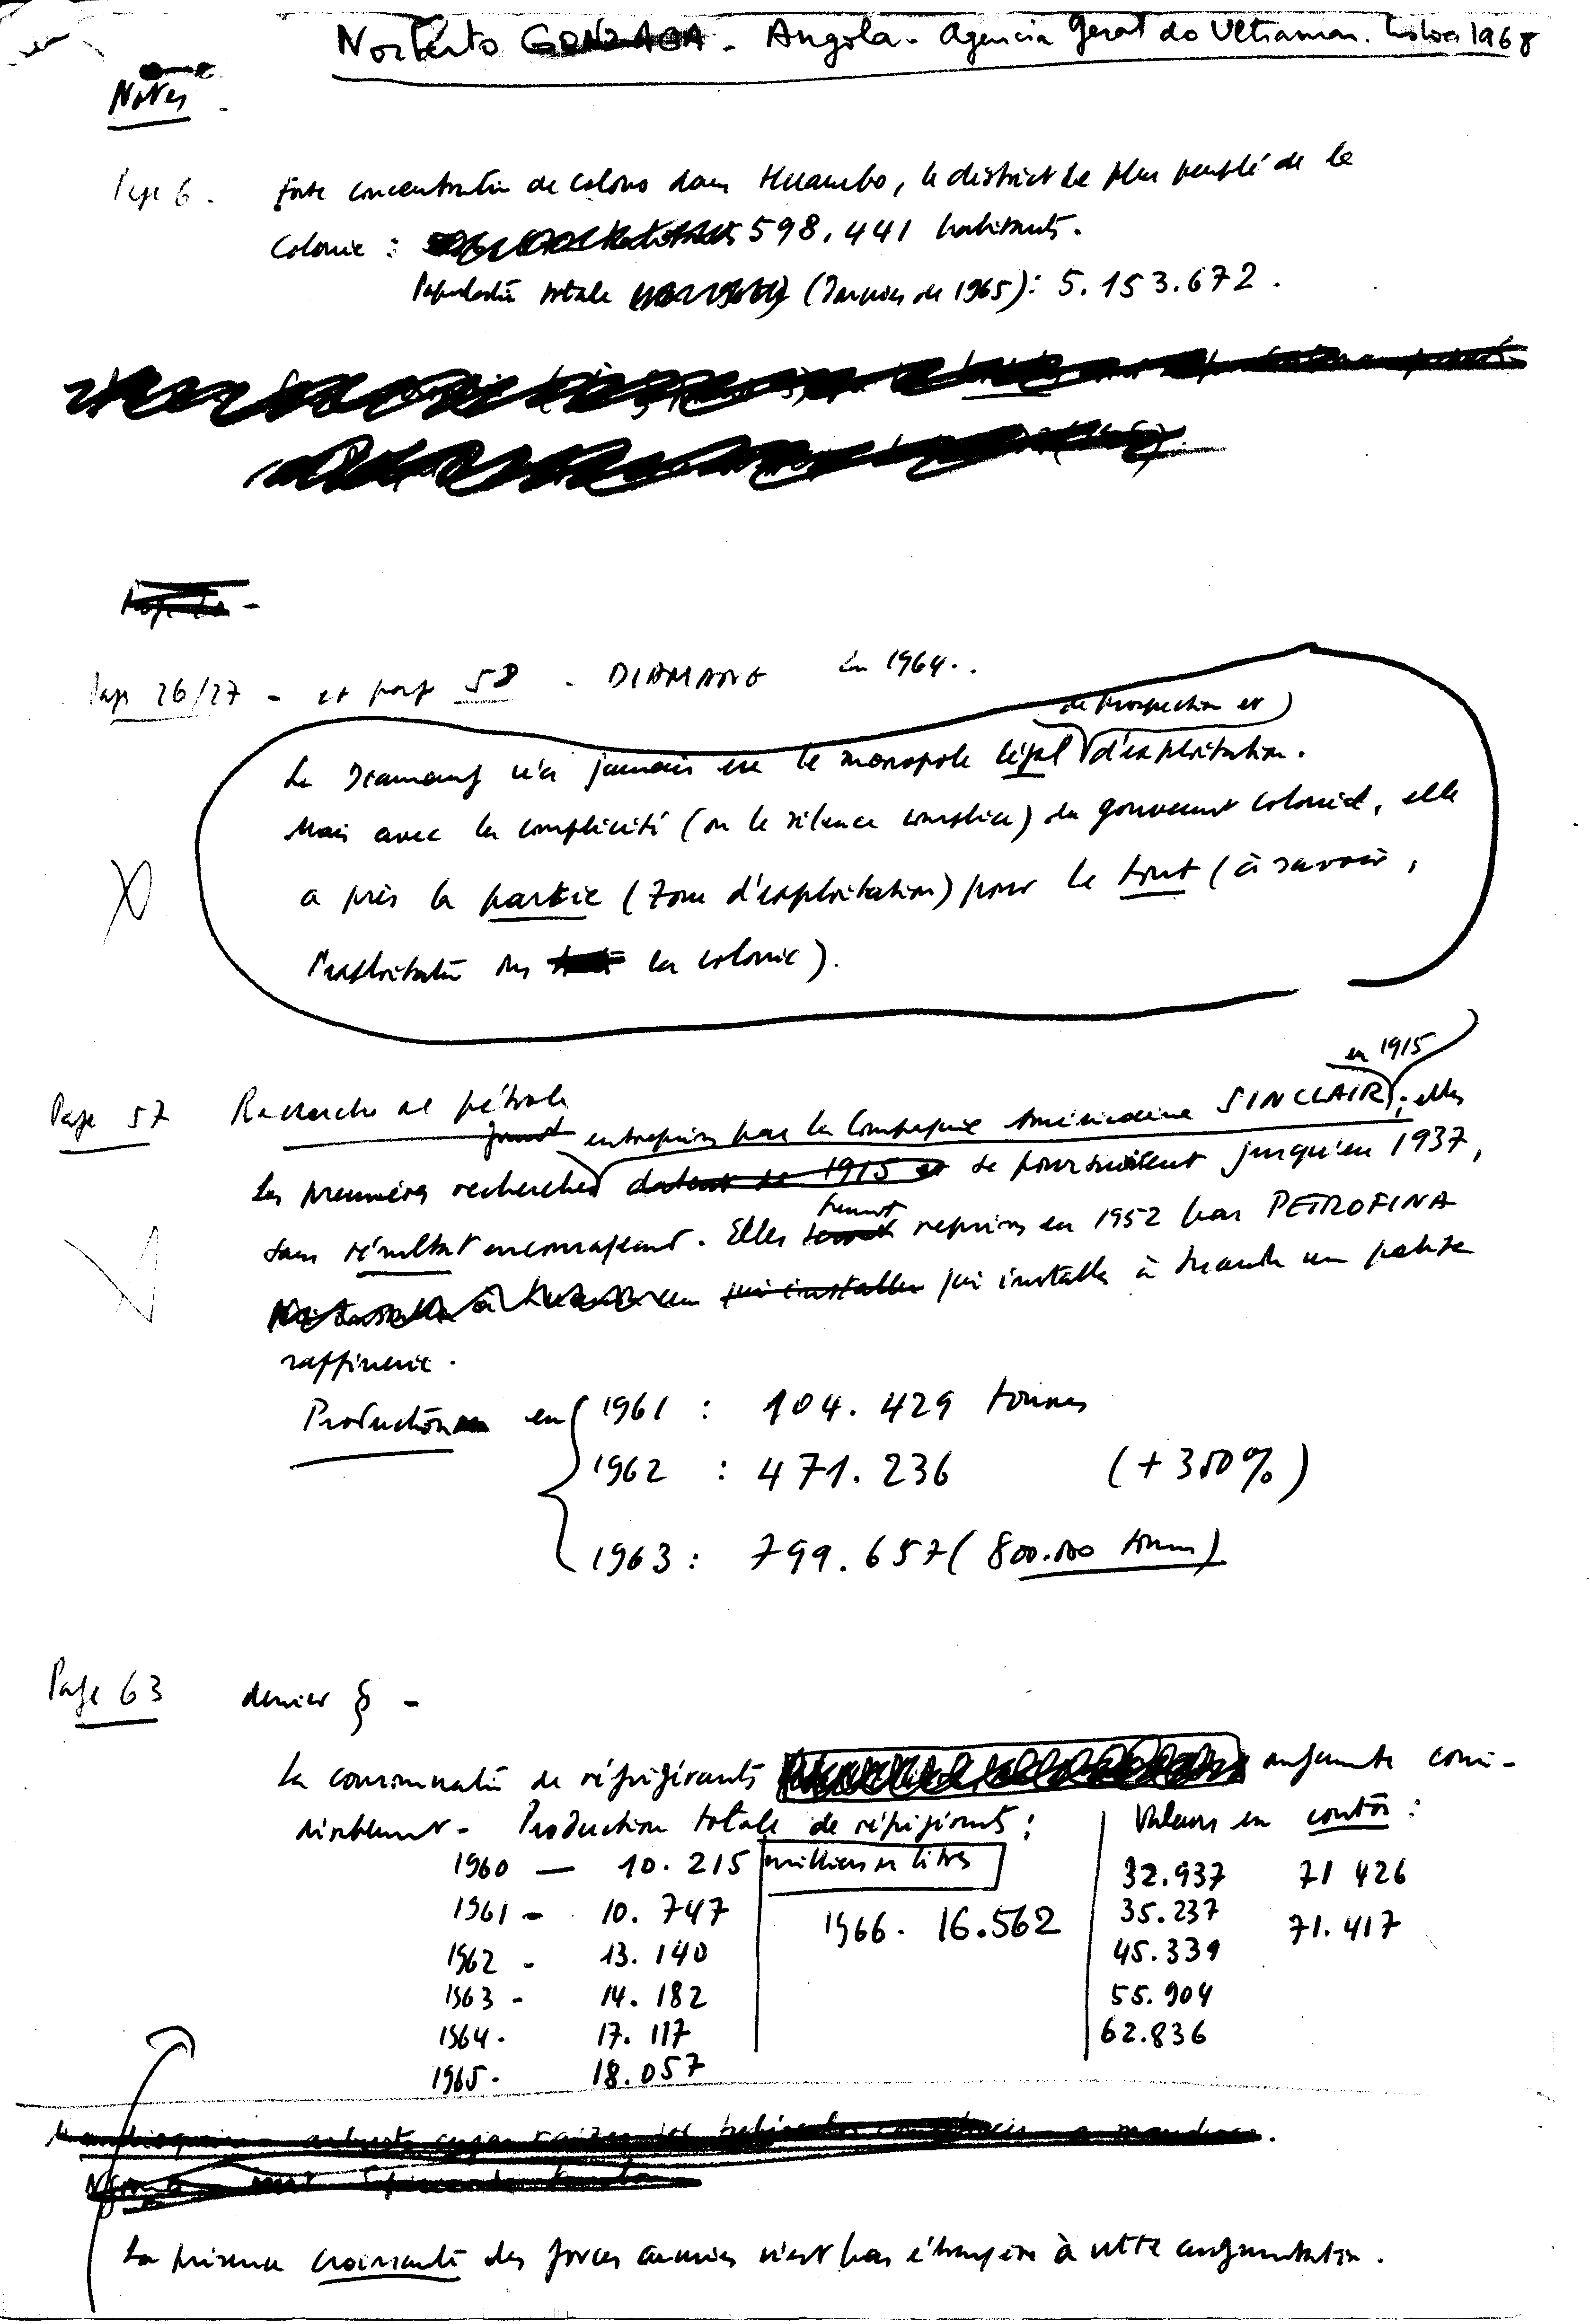 Norberto GONZAGA - Angola - Agencia Geral do Ultramar. Lisboa 1968
Notes
Page 6. Forte concentration de colons dans Huambo, le district le plus peuplé de la
Colonie : 598.441 habitants.
Population totale (Janvier de 1965) : 5.153.672.
Page 26/27 - et page 58 - DIAMANG en 1964..
de prospection et
La Diamang n'a jamais eu le monopole légal d'exploitation.
Mais avec la complicité (ou le silence complice) du gouvernt colonial, elle
a pris la partie (zone d'exploitation) pour le tout (à savoir,
l'exploitation de la colonie).
en 1915
Page 57 Recherche de pétrole
entreprises par la Compagnie Américaine SINCLAIR ; elles
Les premières recherches datent de 1915 et se poursuivent jusqu'en 1937,
furent
sans résultat encourageant. Elles reprises en 1952 par PETROFINA
qui installe qui installe à Luanda une petite
raffinerie.
Production en 1961 : 104.429 tonnes
1962 : 471.236 (+350%)
1963 : 799.657 (800.000 tonnes)
Page 63 dernier § -
La consommation de réfrigérants augmente consi-
dérablement - Production totale de réfrigérants : Valeurs en contos :
1960 — 10.215 milliers de litres 32.937 71 426
1961 - 10.747 1966. 16.562 35.237 71.417
1962 - 13.140 45.339
1963 - 14.182 55.904
1964. 17.117 62.836
1965. 18.057
La présence croissante des forces armées n'est pas étrangère à cette augmentation.